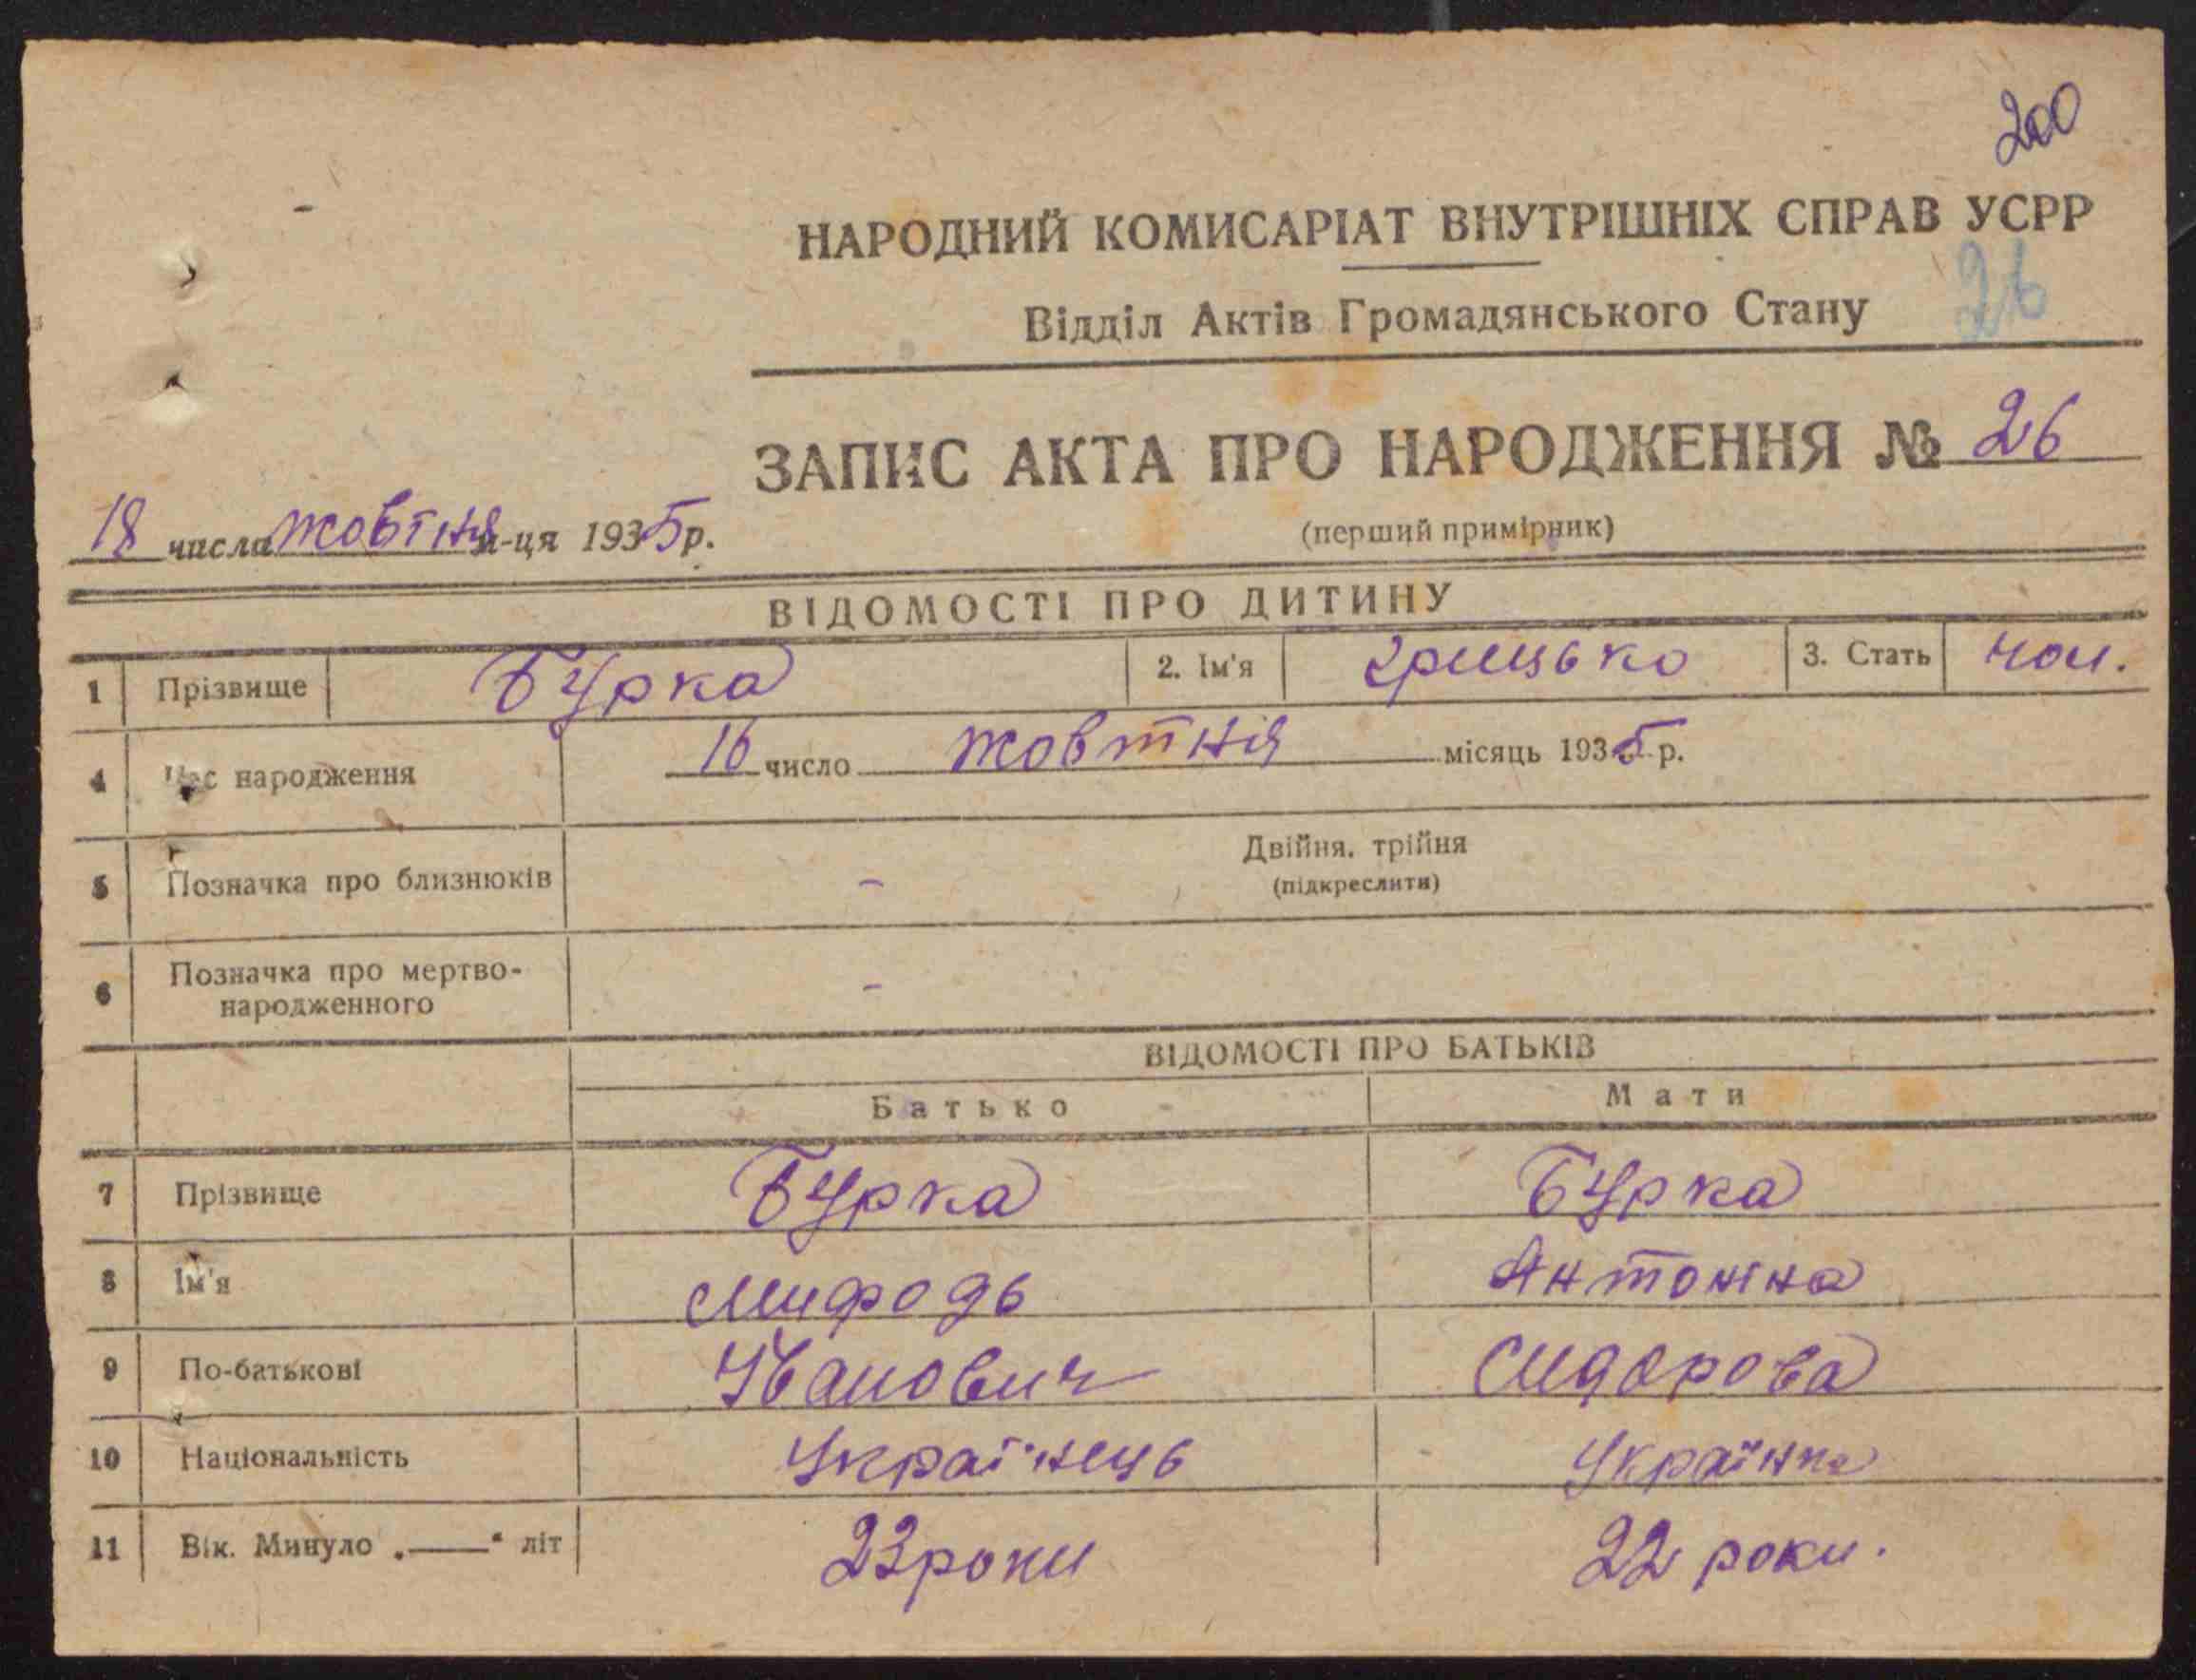 200
НАРОДНИЙ КОМИСАРІАТ ВНУТРІШНІХ СПРАВ УСРР
26
Відділ Актів Громадянського Стану
ЗАПИС АКТА ПРО НАРОДЖЕННЯ № 26
18 числа жовтня м-ця 1935 р.
(перший примірник)
ВІДОМОСТІ ПРО ДИТИНУ
1 Прізвище Бурка 2. Ім'я Грицько 3. Стать чол.
4 Час народження 16 число жовтня місяць 1935 р.
5 Позначка про близнюків - Двійня, трійня
(підкреслити)
6 Позначка про мертво-
народженного -
ВІДОМОСТІ ПРО БАТЬКІВ
Батько Мати
7 Прізвище Бурка Бурка
8 Ім'я Мифодь Антоніна
9 По-батькові Іванович Сидорова
10 Національність Українець Українка
11 Вік. Минуло „——“ літ 23 роки 22 роки.